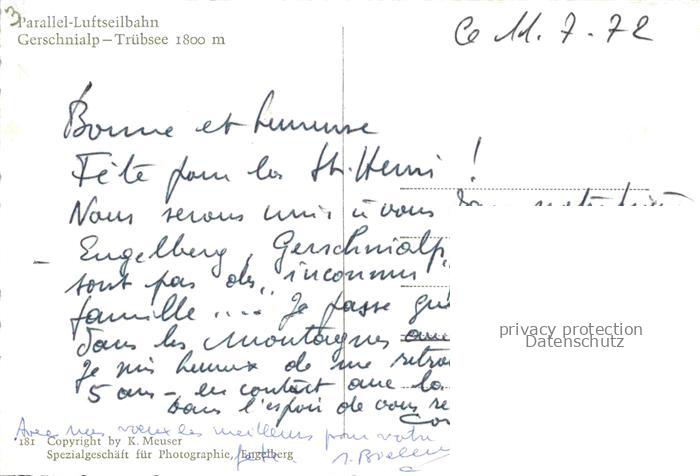 3
Parallel-Luftseilbahn
Gerschnialp – Trübsee 1800 m
Ce 11. 7. 72
Bonne et heureuse
Fête pour la St. Henri !
Nous serons unis à vous
Engelberg, Gerschnialp,
sont pas des "inconnus"
famille .... Je passe
dans les Montagnes
Je suis heureux de me
5 ans – en contact avec la
Dans l'espoir de vous re
Avec mes vœux les meilleurs pour votre
fête.
181 Copyright by K. Meuser
Spezialgeschäft für Photographie, Engelberg
privacy protection
Datenschutz